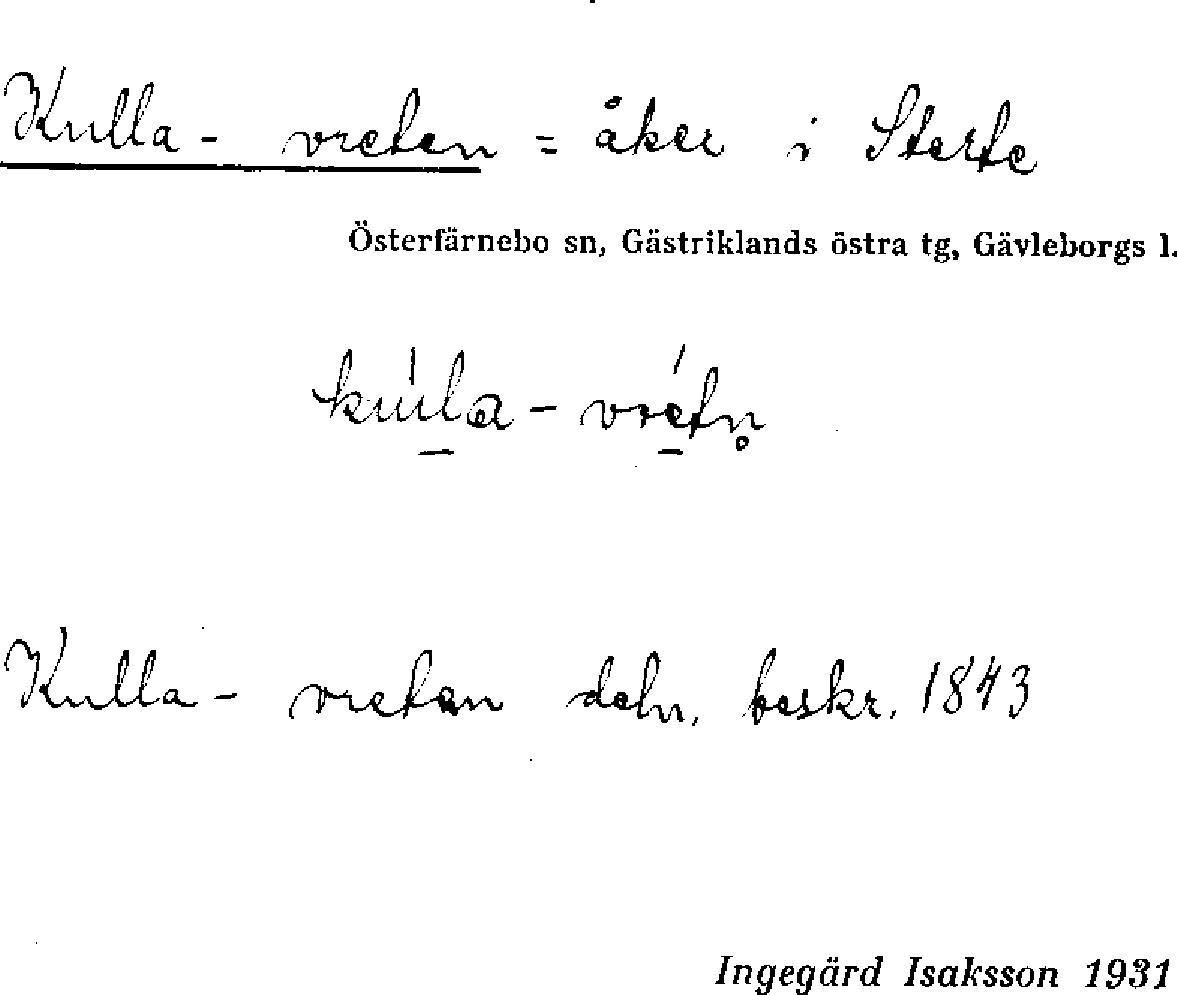 Kulla- vreten = åker i Sterte
Österfärnebo sn, Gästriklands östra tg, Gävleborgs l.
kúla - vrétn̥
Kulla- vretan deln. beskr. 1843
Ingegärd Isaksson 1931